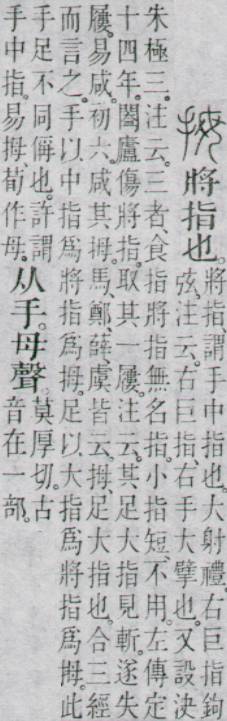 拇 將指也。
將指、謂手中指也。大射禮。右巨指鉤
弦。注云。右巨指、右手大擘也。又設決
朱極三。注云。三者、食指將指無名指。小指短、不用。左傳定
十四年。闔廬傷將指、取其一屨。注云。其足大指見斬。遂失
屨。易咸初六、咸其拇。馬、鄭、薛、虞皆云。拇、足大指也。合三經
而言之。手以中指爲將指爲拇。足以大指爲將指爲拇。此
手足不同偁也。許謂
手中指。易拇荀作母。
从手。母聲。
莫厚切。古
音在一部。